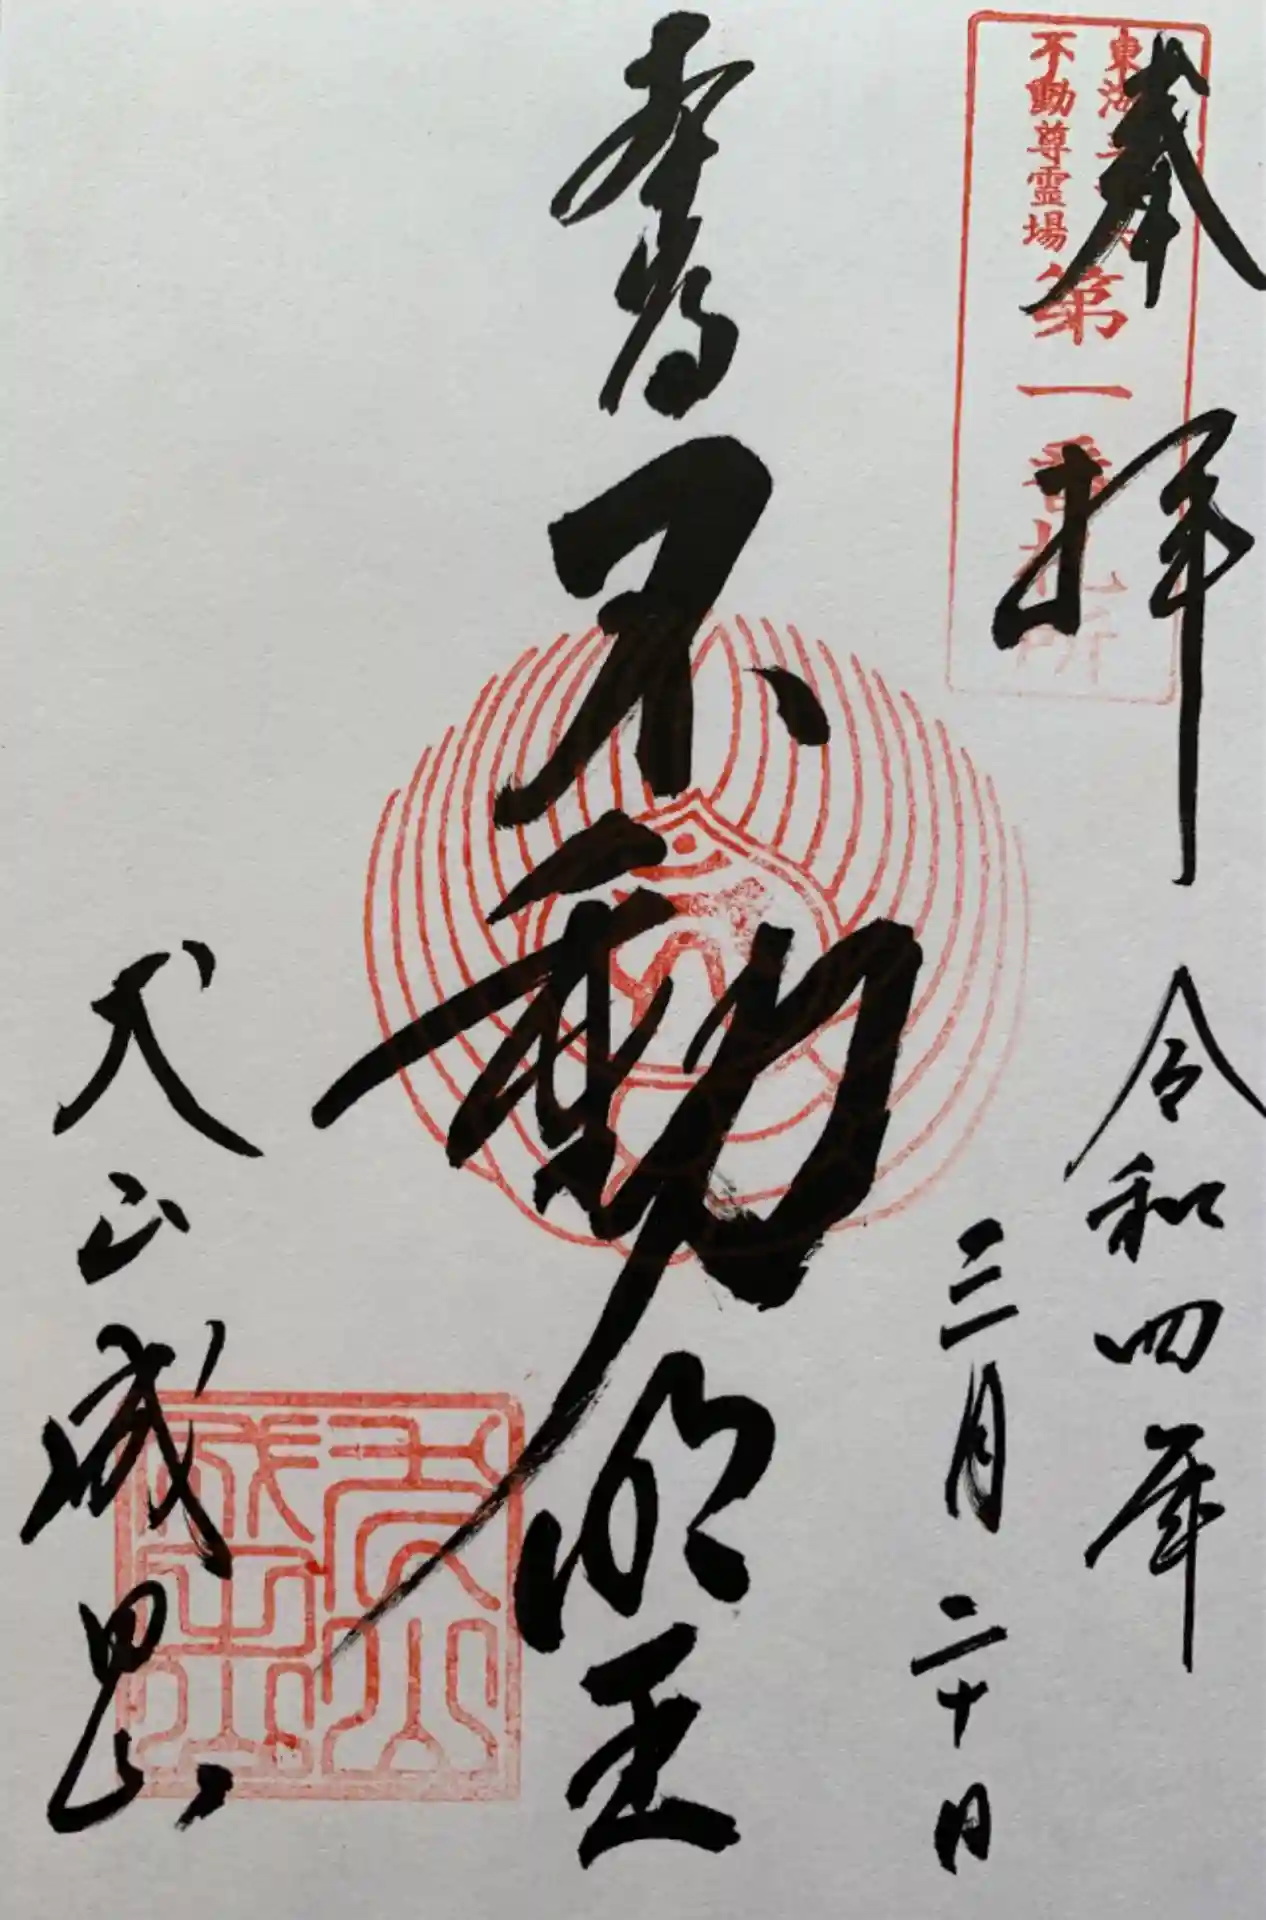 奉拝
令和四年
三月二十日
東海三十六
不動尊霊場
第一番札所
本尊
不動明王
犬山成田山